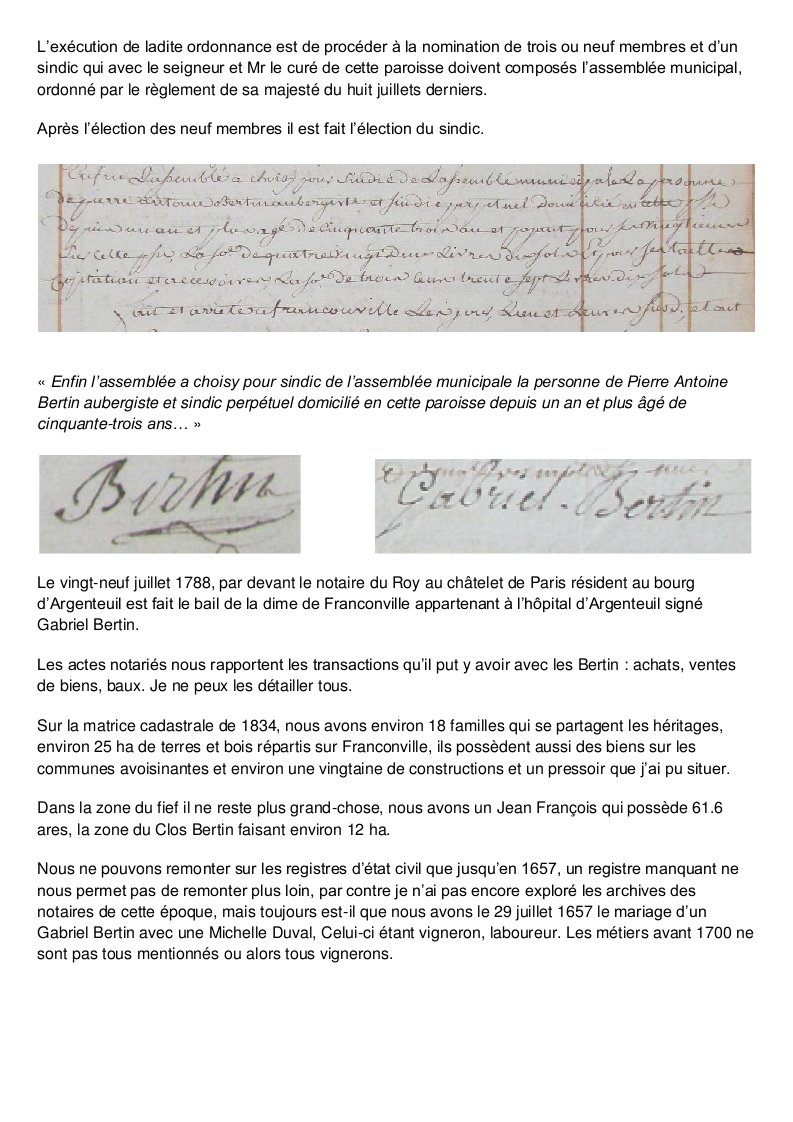 L’exécution de ladite ordonnance est de procéder à la nomination de trois ou neuf membres et d’un
sindic qui avec le seigneur et Mr le curé de cette paroisse doivent composés l’assemblée municipal,
ordonné par le règlement de sa majesté du huit juillets derniers.
Après l’élection des neuf membres il est fait l’élection du sindic.
Enfin L'assemblé a choisy pour Sindic de L'assemblé municipale La personne
de pierre Antoine Bertin aubergiste et sindic perpetuel Domicilié en cette psse
Depuis un an et plus agé de Cinquante trois ans et payant pour ses vingtiemes
Sur cette La de quatre vingt Deux Livres dix sols et pour
Capitation et La de trois cent trente sept Livres dix sols
fait et arreté a francouville Les jour, Lieu et et ont
« Enfin l’assemblée a choisy pour sindic de l’assemblée municipale la personne de Pierre Antoine
Bertin aubergiste et sindic perpétuel domicilié en cette paroisse depuis un an et plus âgé de
cinquante-trois ans… »
Bertin
Gabriel Bertin
Le vingt-neuf juillet 1788, par devant le notaire du Roy au châtelet de Paris résident au bourg
d’Argenteuil est fait le bail de la dime de Franconville appartenant à l’hôpital d’Argenteuil signé
Gabriel Bertin.
Les actes notariés nous rapportent les transactions qu’il put y avoir avec les Bertin : achats, ventes
de biens, baux. Je ne peux les détailler tous.
Sur la matrice cadastrale de 1834, nous avons environ 18 familles qui se partagent les héritages,
environ 25 ha de terres et bois répartis sur Franconville, ils possèdent aussi des biens sur les
communes avoisinantes et environ une vingtaine de constructions et un pressoir que j’ai pu situer.
Dans la zone du fief il ne reste plus grand-chose, nous avons un Jean François qui possède 61.6
ares, la zone du Clos Bertin faisant environ 12 ha.
Nous ne pouvons remonter sur les registres d’état civil que jusqu’en 1657, un registre manquant ne
nous permet pas de remonter plus loin, par contre je n’ai pas encore exploré les archives des
notaires de cette époque, mais toujours est-il que nous avons le 29 juillet 1657 le mariage d’un
Gabriel Bertin avec une Michelle Duval, Celui-ci étant vigneron, laboureur. Les métiers avant 1700 ne
sont pas tous mentionnés ou alors tous vignerons.